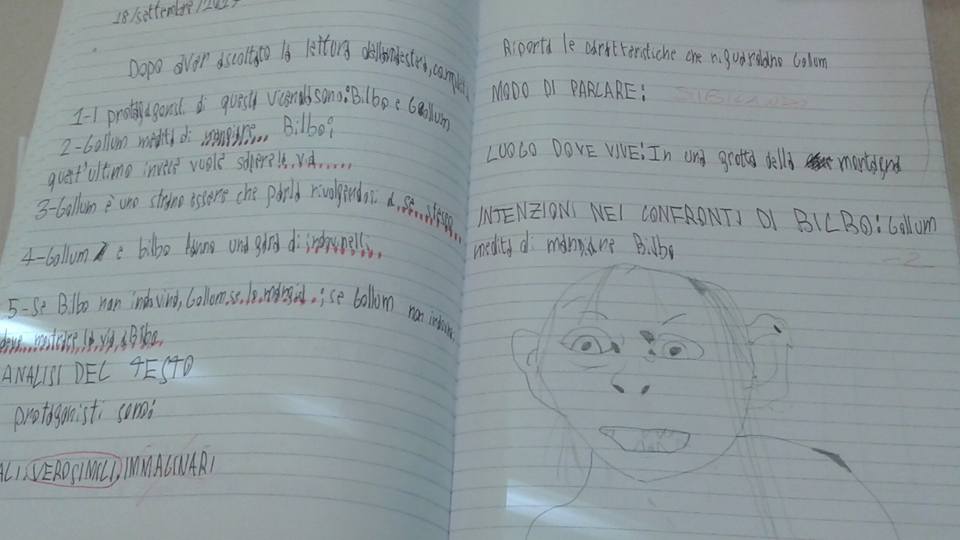 18/settembre/
Dopo aver ascoltato la lettura
1-I protagonisti di questa vicenda sono: Bilbo e Gollum
2-Gollum medita di mangiare... Bilbo;
quest'ultimo invece vuole sapere la via.....
3-Gollum è uno strano essere che parla rivolgendosi a se stesso
4-Gollum e bilbo fanno una gara di indovinelli
5-Se Bilbo non indovina, Gollum se lo mangia.; se Gollum non indovina
deve mostrare la via a Bilbo.
ANALISI DEL TESTO
protagonisti sono:
ALI, VEROSIMILI, IMMAGINARI
Riporta le caratteristiche che riguardano Gollum
MODO DI PARLARE: SIBILANDO
LUOGO DOVE VIVE: In una grotta della montagna
INTENZIONI NEI CONFRONTI DI BILBO: Gollum
medita di mangiare Bilbo